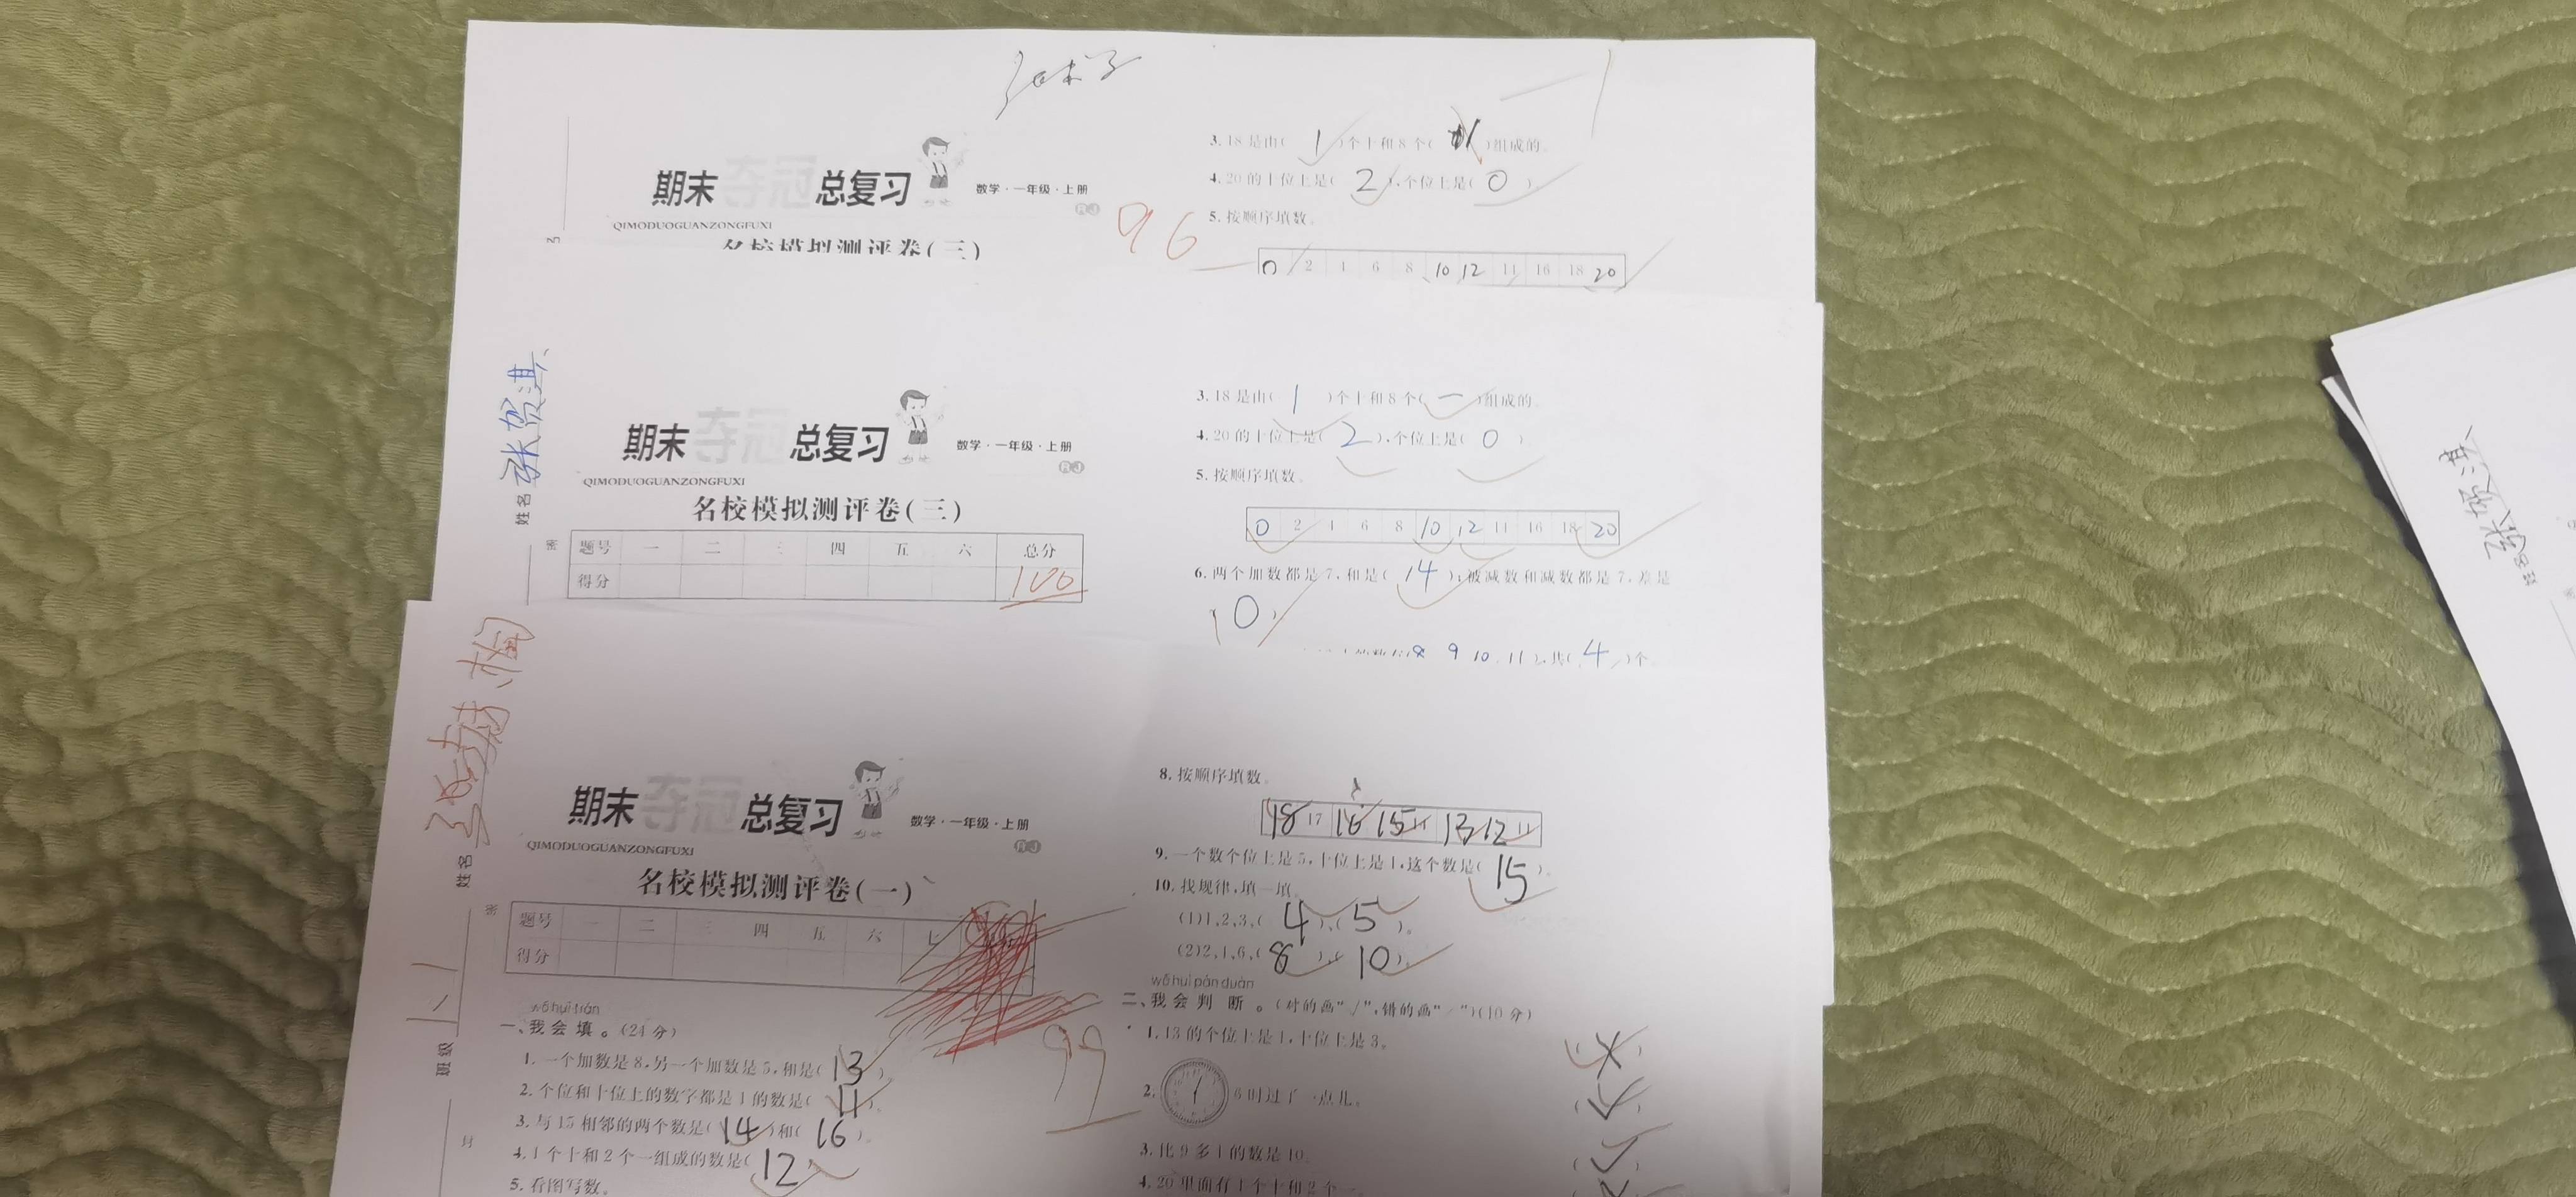 期末夺冠总复习
数学·一年级·上册
RJ
QIMODUOGUANZONGFUXI
名校模拟测评卷(三)
96
3.18是由( 1 )个十和8个( )组成的。
4.20的十位上是( 2 ),个位上是( 0 )
5.按顺序填数。
0 2 4 6 8 10 12 14 16 18 20
姓名 张贺淇
期末夺冠总复习
数学·一年级·上册
RJ
QIMODUOGUANZONGFUXI
名校模拟测评卷(三)
题号 一 二 三 四 五 六 总分
得分 100
3.18是由( 1 )个十和8个( 一 )组成的。
4.20的十位上是( 2 ),个位上是( 0 )
5.按顺序填数。
0 2 4 6 8 10 12 14 16 18 20
6.两个加数都是7,和是( 14 );被减数和减数都是7,差是
( 0 )
8 9 10 11 ),共( 4 )个
姓名
班级
期末夺冠总复习
数学·一年级·上册
RJ
QIMODUOGUANZONGFUXI
名校模拟测评卷(一)
题号 一 二 三 四 五 六 七
得分
99
wǒ huì tián
一、我会填。(24分)
1.一个加数是8,另一个加数是5,和是( 13 )
2.个位和十位上的数字都是1的数是( 11 )。
3.与15相邻的两个数是( 14 )和( 16 )。
4.1个十和2个一组成的数是( 12 )
5.看图写数。
8.按顺序填数。
18 17 16 15 14 13 12 11
9.一个数个位上是5,十位上是1,这个数是( 15 )。
10.找规律,填一填。
(1)1,2,3,( 4 ),( 5 )。
(2)2,4,6,( 8 ),( 10 )。
wǒ huì pàn duàn
二、我会判断。(对的画"√",错的画"×")(10分)
1.13的个位上是1,十位上是3。
2. 6时过了一点儿。
3.比9多1的数是10。
4.20里面有1个十和2个一
姓名 张贺淇